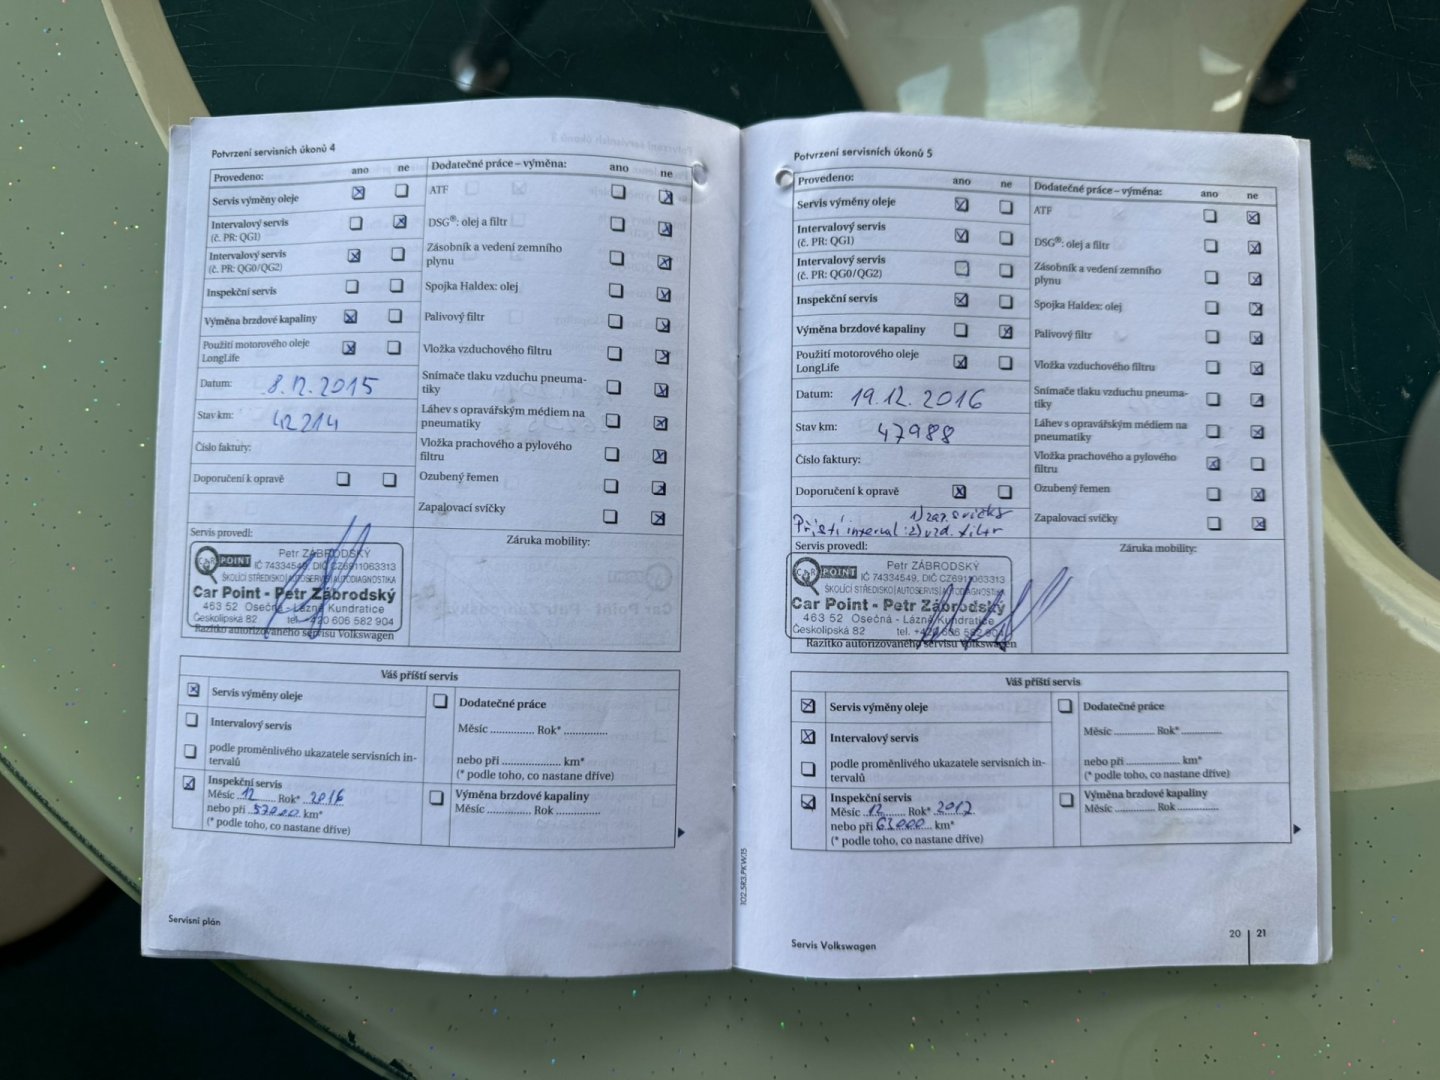 Potvrzení servisních úkonů 4
Provedeno: ano ne
Servis výměny oleje
Intervalový servis
(č. PR: QG1)
Intervalový servis
(č. PR: QG0/QG2)
Inspekční servis
Výměna brzdové kapaliny
Použití motorového oleje
LongLife
Datum: 8.12.2015
Stav km: 42214
Číslo faktury:
Doporučení k opravě
Servis provedl:
Dodatečné práce – výměna: ano ne
ATF
DSG®: olej a filtr
Zásobník a vedení zemního
plynu
Spojka Haldex: olej
Palivový filtr
Vložka vzduchového filtru
Snímače tlaku vzduchu pneuma-
tiky
Láhev s opravářským médiem na
pneumatiky
Vložka prachového a pylového
filtru
Ozubený řemen
Zapalovací svíčky
Záruka mobility:
CAR POINT
Petr ZÁBRODSKÝ
IČ 74334549, DIČ CZ6911063313
ŠKOLÍCÍ STŘEDISKO|AUTOSERVIS|AUTODIAGNOSTIKA
Car Point - Petr Zábrodský
463 52 Osečná - Lázně Kundratice
Českolipská 82 tel. +420 606 582 904
Razítko autorizovaného servisu Volkswagen
Váš příští servis
Servis výměny oleje
Intervalový servis
podle proměnlivého ukazatele servisních in-
tervalů
Inspekční servis
Měsíc 12 Rok* 2016
nebo při 57000 km*
(* podle toho, co nastane dříve)
Dodatečné práce
Měsíc .............. Rok* ..............
nebo při ...................... km*
(* podle toho, co nastane dříve)
Výměna brzdové kapaliny
Měsíc .............. Rok ..............
Servisní plán
Potvrzení servisních úkonů 5
Provedeno: ano ne
Servis výměny oleje
Intervalový servis
(č. PR: QG1)
Intervalový servis
(č. PR: QG0/QG2)
Inspekční servis
Výměna brzdové kapaliny
Použití motorového oleje
LongLife
Datum: 19.12.2016
Stav km: 47988
Číslo faktury:
Doporučení k opravě
1) zap. svíčky
Příští interval: 2) vzd. filtr
Servis provedl:
Dodatečné práce – výměna: ano ne
ATF
DSG®: olej a filtr
Zásobník a vedení zemního
plynu
Spojka Haldex: olej
Palivový filtr
Vložka vzduchového filtru
Snímače tlaku vzduchu pneuma-
tiky
Láhev s opravářským médiem na
pneumatiky
Vložka prachového a pylového
filtru
Ozubený řemen
Zapalovací svíčky
Záruka mobility:
CAR POINT
Petr ZÁBRODSKÝ
IČ 74334549, DIČ CZ6911063313
ŠKOLÍCÍ STŘEDISKO|AUTOSERVIS|AUTODIAGNOSTIKA
Car Point - Petr Zábrodský
463 52 Osečná - Lázně Kundratice
Českolipská 82 tel. +420 606 582 904
Razítko autorizovaného servisu Volkswagen
Váš příští servis
Servis výměny oleje
Intervalový servis
podle proměnlivého ukazatele servisních in-
tervalů
Inspekční servis
Měsíc 12 Rok* 2017
nebo při 63000 km*
(* podle toho, co nastane dříve)
Dodatečné práce
Měsíc .............. Rok* ..............
nebo při ...................... km*
(* podle toho, co nastane dříve)
Výměna brzdové kapaliny
Měsíc .............. Rok ..............
102.5R3.PKW.15
Servis Volkswagen
20 21